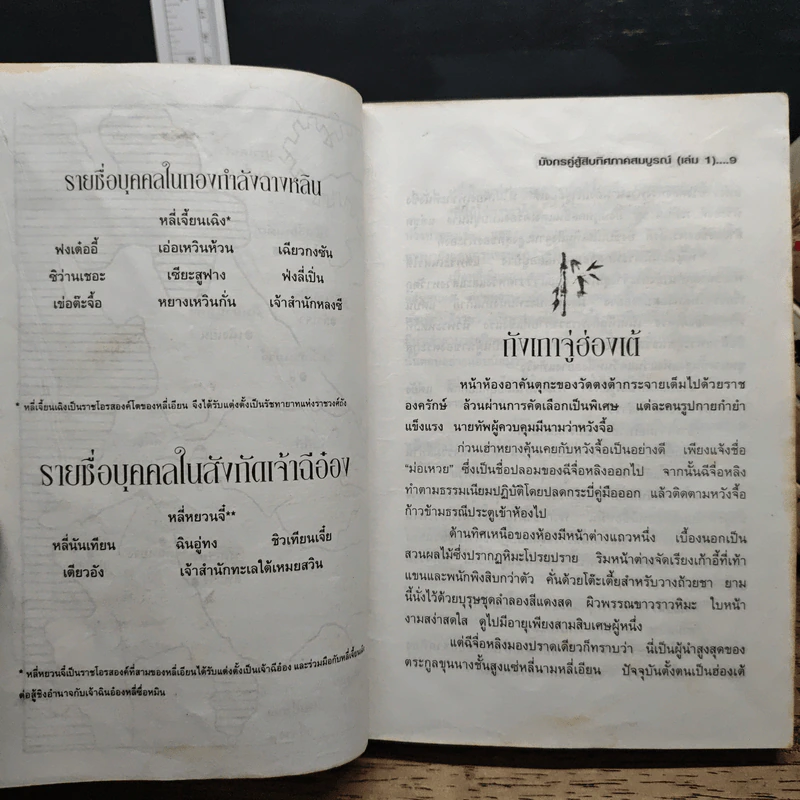 รายชื่อบุคคลในกองกำลังฉางหลิน
หลี่เจี้ยนเฉิง*
ฟงเต๋ออี้ เอ่อเหวินห้วน เฉียวกงซัน
ซิว่านเชอะ เซียะสูฟาง ฟงลี่เปิ่น
เช่อต๊ะจื้อ หยางเหวินกั่น เจ้าสำนักหลงซี
* หลี่เจี้ยนเฉิงเป็นราชโอรสองค์โตของหลี่เอียน จึงได้รับแต่งตั้งเป็นรัชทายาทแห่งราชวงศ์ถัง
รายชื่อบุคคลในสังกัดเจ้าฉีอ๋อง
หลี่หยวนจี๋**
หลี่นันเทียน ฉินอู่ทง ชิวเทียนเจี๋ย
เตียวอัง เจ้าสำนักทะเลใต้เหมยสวิน
* หลี่หยวนจี๋เป็นราชโอรสองค์ที่สามของหลี่เอียนได้รับแต่งตั้งเป็นเจ้าฉีอ๋อง และร่วมมือกับหลี่เจี้ยนเฉิง
ต่อสู้ชิงอำนาจกับเจ้าฉินอ๋องหลี่ซื่อหมิน
มังกรคู่สู้สิบทิศภาคสมบูรณ์ (เล่ม 1)....9
ถังเกาจู่ฮ่องเต้
หน้าห้องอาคันตุกะของวัดตงต้ากระจายเต็มไปด้วยราช
องครักษ์ ล้วนผ่านการคัดเลือกเป็นพิเศษ แต่ละคนรูปกายกำยำ
แข็งแรง นายทัพผู้ควบคุมมีนามว่าหวังจื้อ
ก่วนเฮ่าหยางคุ้นเคยกับหวังจื้อเป็นอย่างดี เพียงแจ้งชื่อ
“ม่อเหวย” ซึ่งเป็นชื่อปลอมของฉีจื่อหลิงออกไป จากนั้นฉีจื่อหลิง
ทำตามธรรมเนียมปฏิบัติโดยปลดกระบี่คู่มือออก แล้วติดตามหวังจื้อ
ก้าวข้ามธรณีประตูเข้าห้องไป
ด้านทิศเหนือของห้องมีหน้าต่างแถวหนึ่ง เบื้องนอกเป็น
สวนผลไม้ซึ่งปรากฏหิมะโปรยปราย ริมหน้าต่างจัดเรียงเก้าอี้ที่เท้า
แขนและพนักพิงสิบกว่าตัว คั่นด้วยโต๊ะเตี้ยสำหรับวางถ้วยชา ยาม
นี้นั่งไว้ด้วยบุรุษชุดลำลองสีแดงสด ผิวพรรณขาวราวหิมะ ใบหน้า
งามสง่าสดใส ดูไปมีอายุเพียงสามสิบเศษผู้หนึ่ง
แต่ฉีจื่อหลิงมองปราดเดียวก็ทราบว่า นี่เป็นผู้นำสูงสุดของ
ตระกูลขุนนางชั้นสูงแซ่หลี่นามหลี่เอียน ปัจจุบันตั้งตนเป็นฮ่องเต้